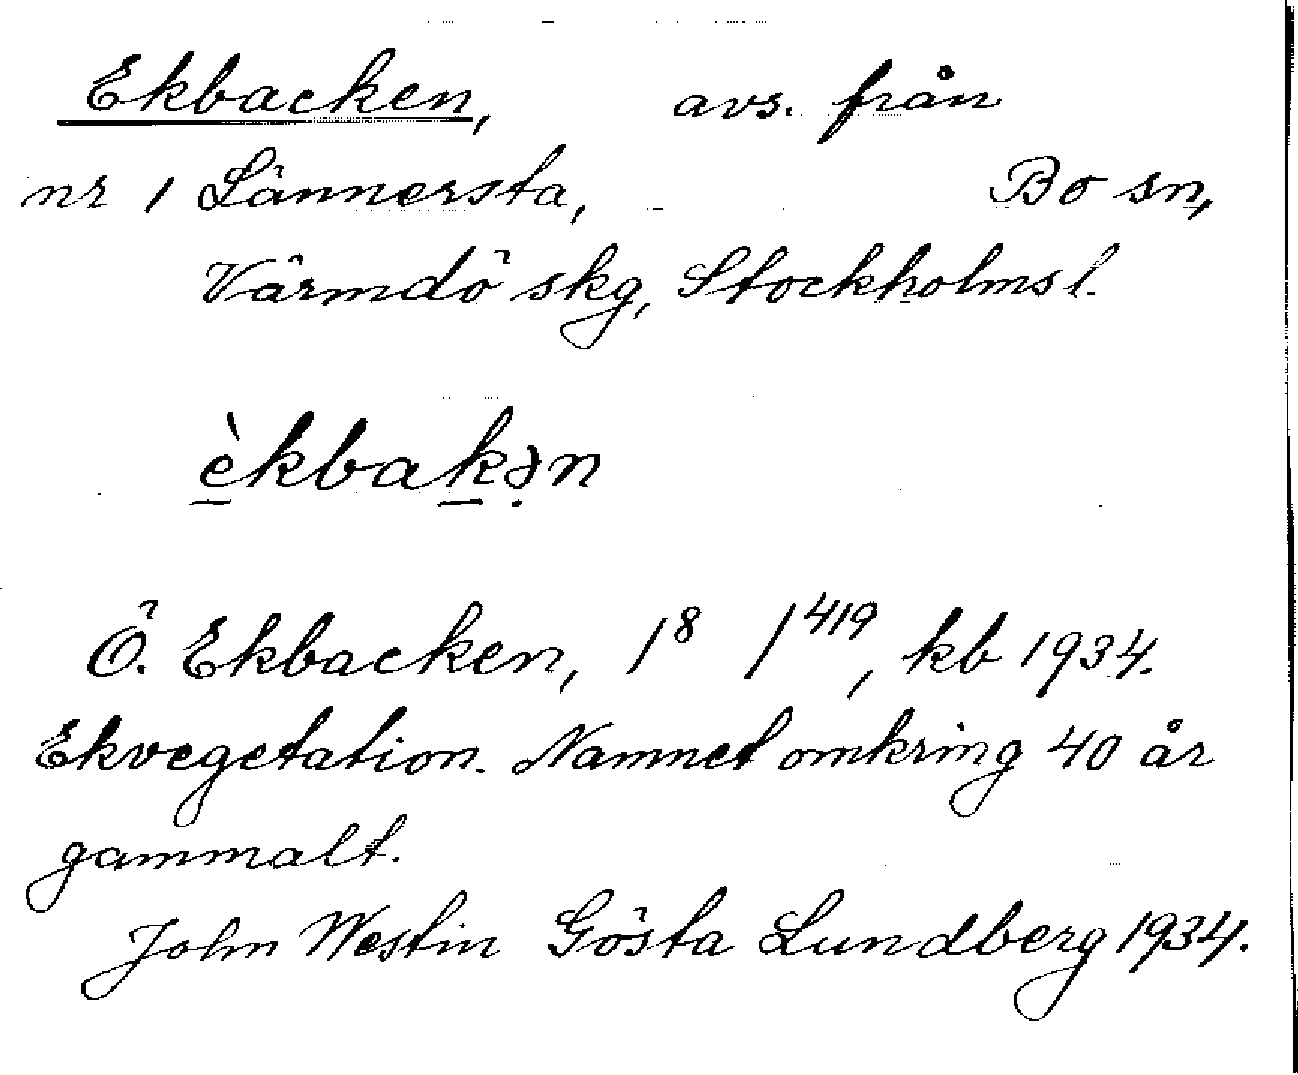 Ekbacken, avs. från
nr 1 Lännersta, Bo sn,
Värmdö skg, Stockholms l.
èkbakə̣n
Ö. Ekbacken, 1⁸ 1⁴¹⁹, kb 1934.
Ekvegetation. Namnet omkring 40 år
gammalt.
John Westin Gösta Lundberg 1934.